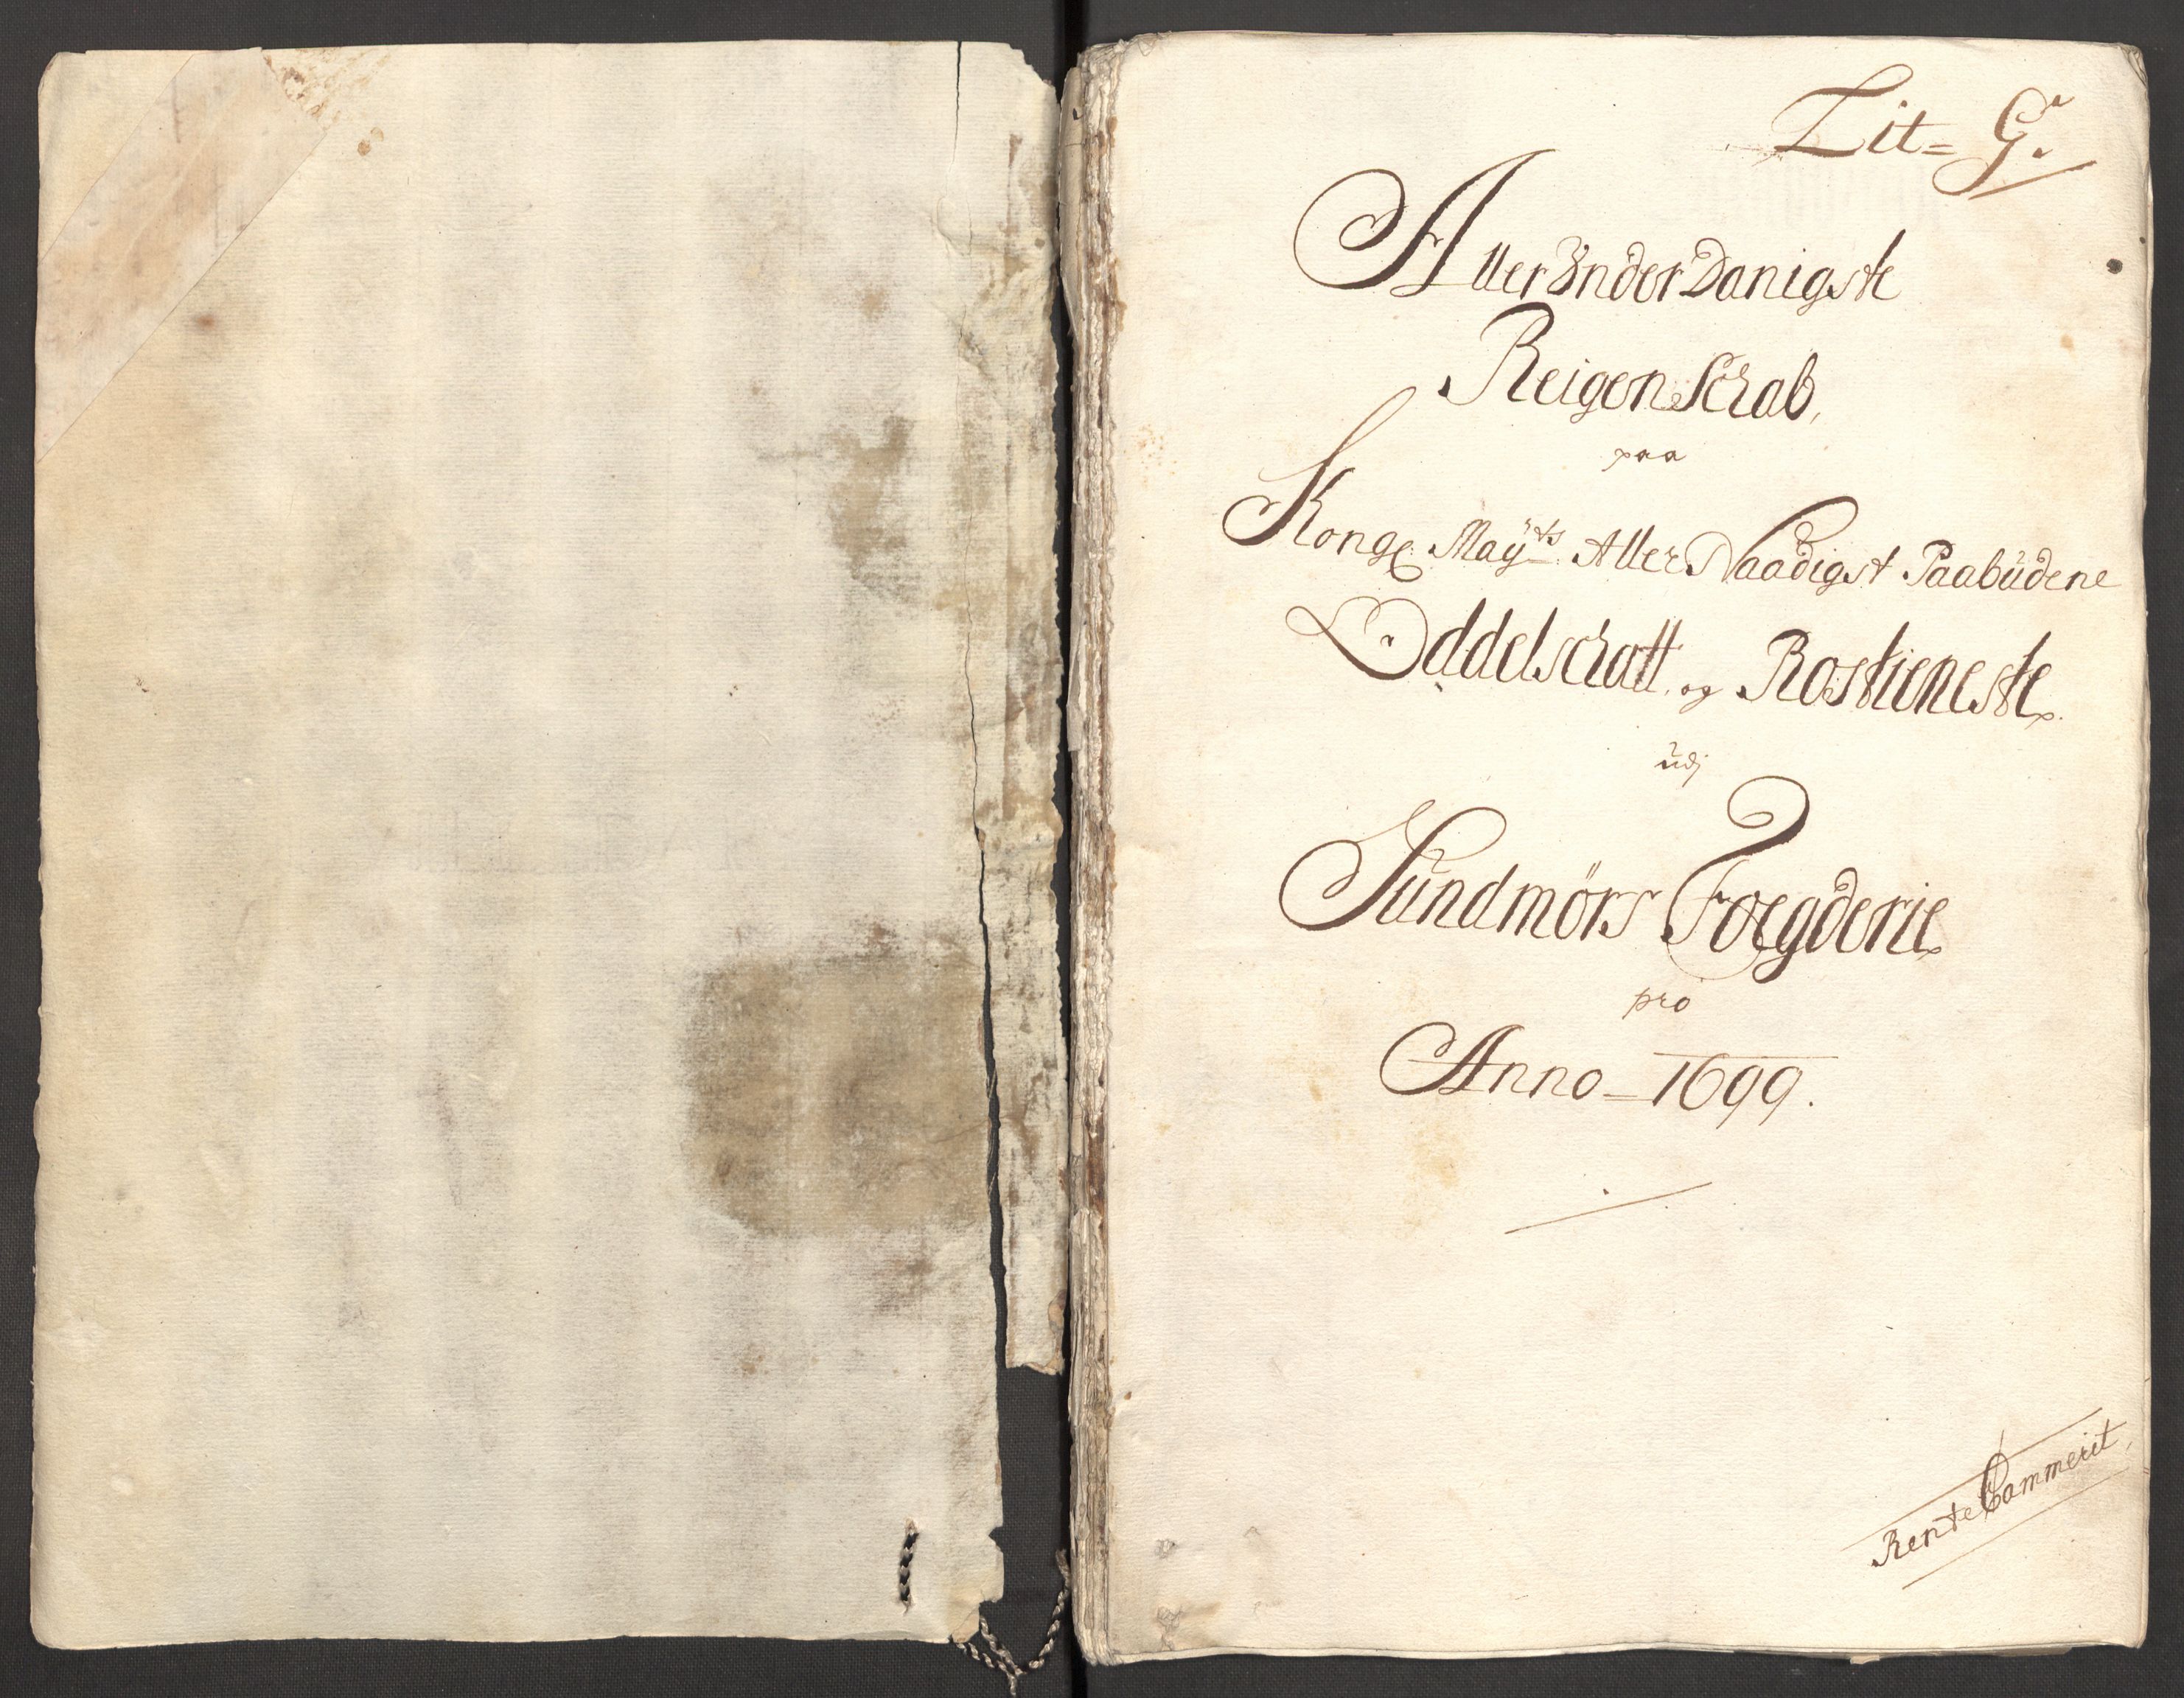 Lit= G.
AllerVnderDanigste
Reigenschab,
paa
Kongl: Mayts AllerNaadigst Paabüdene
Oddelschatt, og Rostieneste
üdj
Sündmörs Foegderie
pro
Anno-1699.
RenteCammerit,